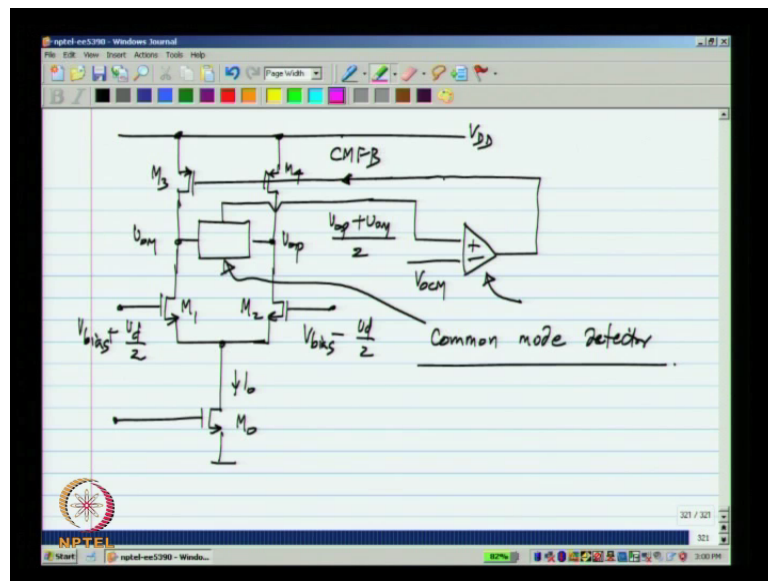 nptel-ee5390 - Windows Journal
File Edit View Insert Actions Tools Help
Page Width
B I
VDD
CMFB
M3
M4
Vom
Vop
Vop + Vom
2
+
-
VOCM
M1
M2
Vbias + Vd
2
Vbias - Vd
2
Common mode detector
I0
M0
321 / 321
321
NPTEL
Start
nptel-ee5390 - Windo...
82%
3:00 PM